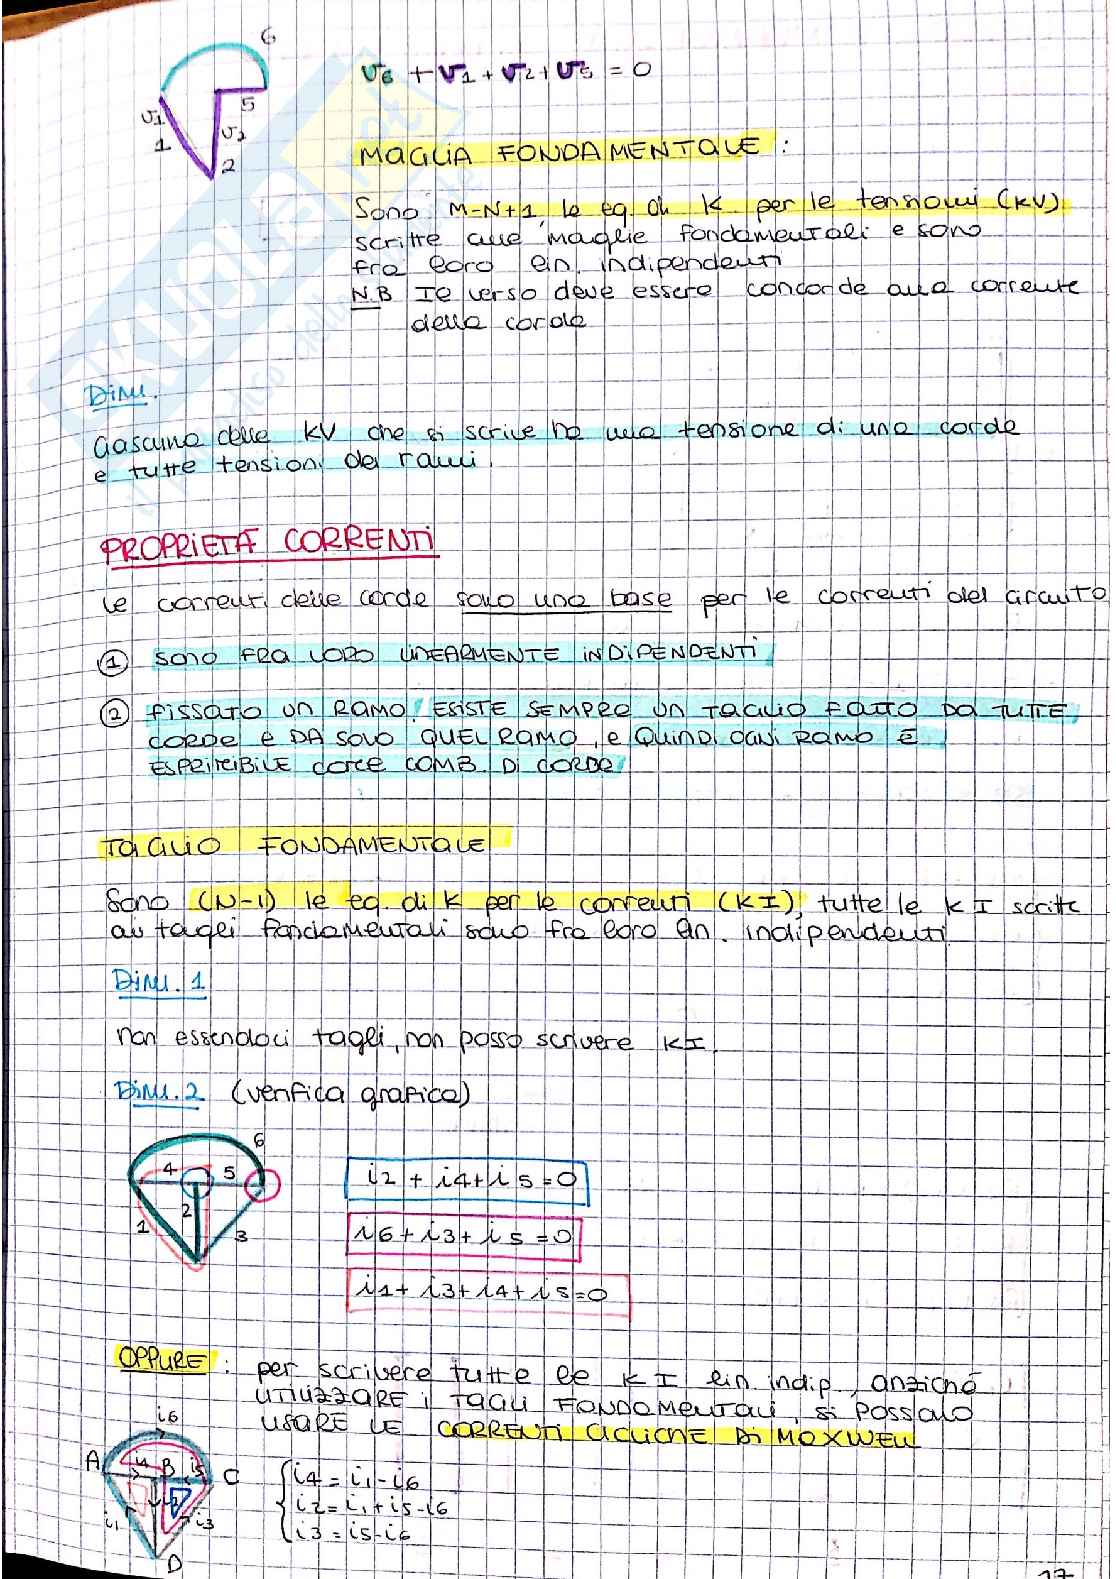 6
V6 + V1 + V2 + V5 = 0
V1
5
1
V2
2
MAGLIA FONDAMENTALE :
Sono M-N+1 le eq. di K per le tensioni (KV)
scritte alle maglie fondamentali e sono
fra loro lin. indipendenti
N.B Il verso deve essere concorde alla corrente
della corda
Dim.
Ciascuna delle KV che si scrive ha una tensione di una corda
e tutte tensioni dei rami.
PROPRIETÀ CORRENTI
Le correnti delle corde sono una base per le correnti del circuito
① SONO FRA LORO LINEARMENTE INDIPENDENTI
② FISSATO UN RAMO, ESISTE SEMPRE UN TAGLIO FATTO DA TUTTE
CORDE E DA SOLO QUEL RAMO, E QUINDI OGNI RAMO È
ESPRIMIBILE COME COMB. DI CORDE
TAGLIO FONDAMENTALE
Sono (N-1) le eq. di K per le correnti (KI), tutte le KI scritte
ai tagli fondamentali sono fra loro lin. indipendenti
Dim. 1
non essendoci tagli, non posso scrivere KI.
Dim. 2 (verifica grafica)
6
4
5
2
1
3
i2 + i4 + i5 = 0
i6 + i3 + i5 = 0
i1 + i3 + i4 + i5 = 0
OPPURE : per scrivere tutte le KI lin indip, anziché
UTILIZZARE i TAGLI FONDAMENTALI, si possono
USARE LE CORRENTI CICLICHE DI MAXWELL
i6
A
i4
B
i5
C
i4 = i1 - i6
i2 = i1 + i5 - i6
i3 = i5 - i6
i1
i2
i3
D
17